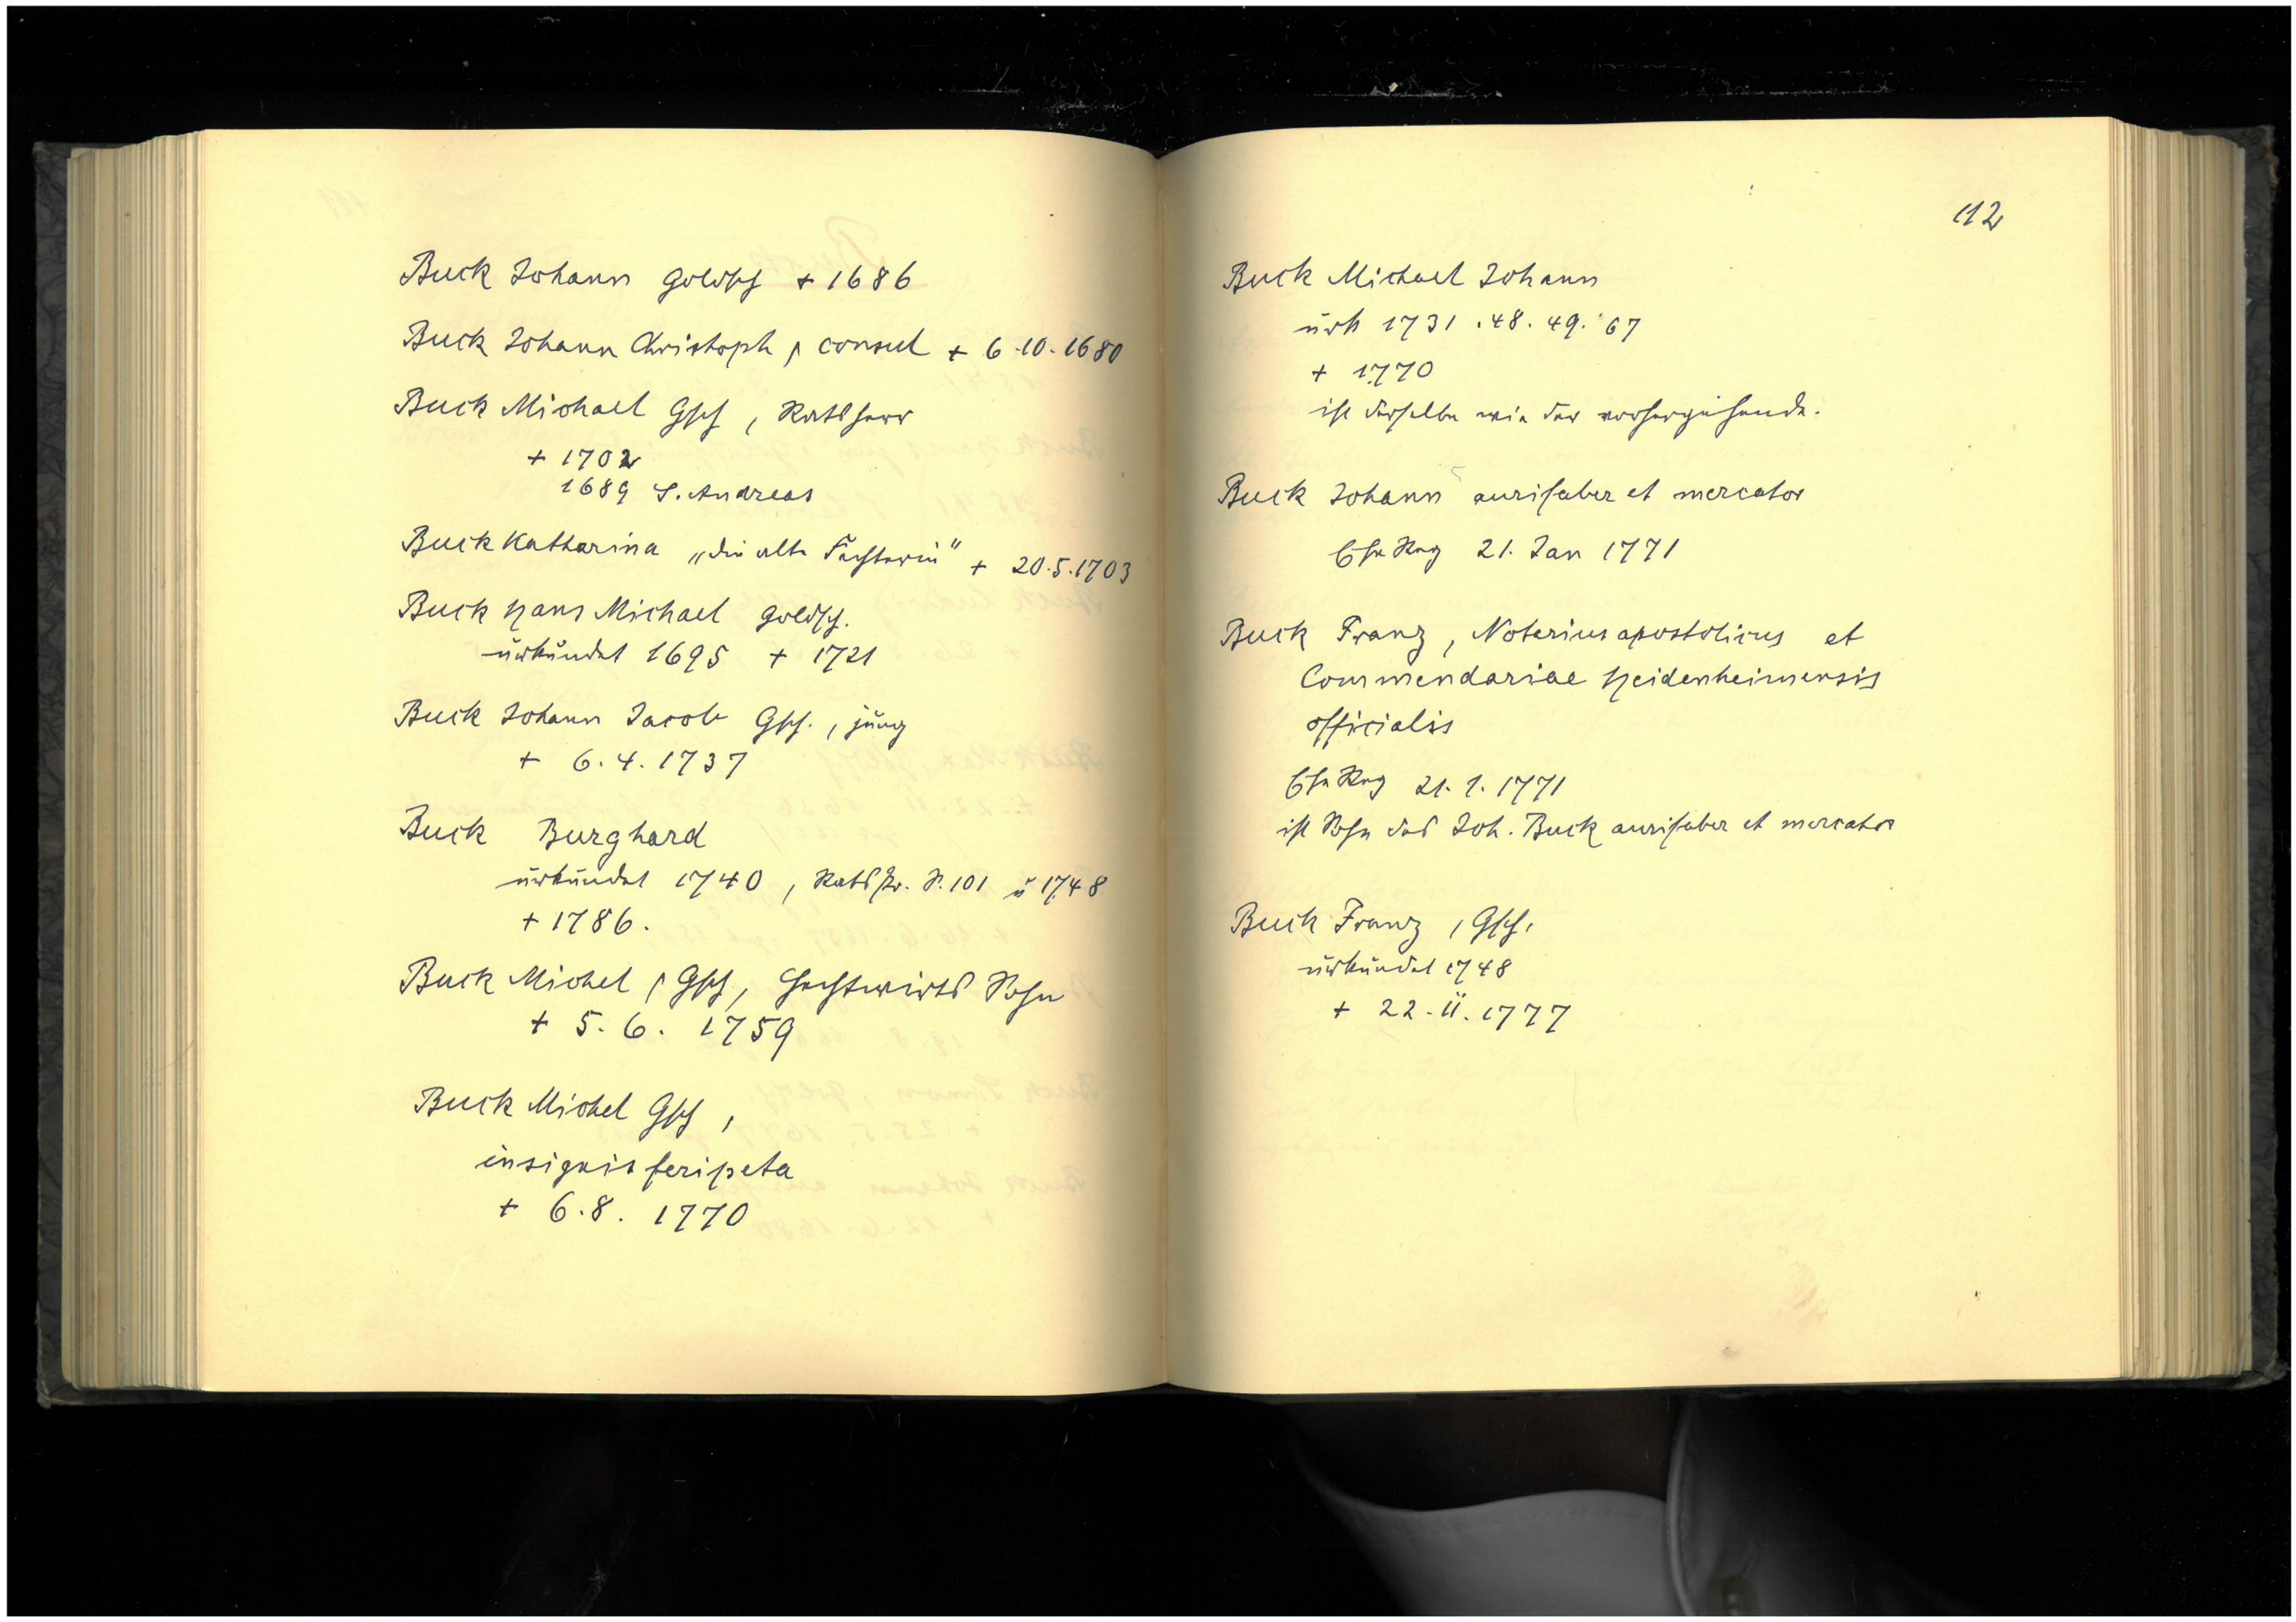 Buck Johann Goldsch + 1686
Buck Johann Christoph, consul + 6.10.1680
Buck Michael Gsch, Ratsherr
+ 1702
1689 S. Andreas
Buck Katharina „die alte Fechterin" + 20.5.1703
Buck Hans Michael Goldsch.
urkundet 1695 + 1721
Buck Johann Jacob Gsch., jung
+ 6.4.1737
Buck Burghard
urkundet 1740, Ratspr. S. 101 u 1748
+ 1786.
Buck Michel, Gsch, Hechtwirts Sohn
+ 5.6. 1759
Buck Michel Gsch,
insignis feripeta
+ 6.8. 1770
112
Buck Michael Johann
urk 1731.48.49.67
+ 1770
ist derselbe wie der vorhergehende.
Buck Johann aurifaber et mercator
Ehe Reg 21. Jan 1771
Buck Franz, Notarius apostolicus et
Commendariae Heidenheimensis
officialis
Ehe Reg 21.1.1771
ist Sohn des Joh. Buck aurifaber et mercator
Buck Franz, Gsch.
urkundet 1748
+ 22.11.1777